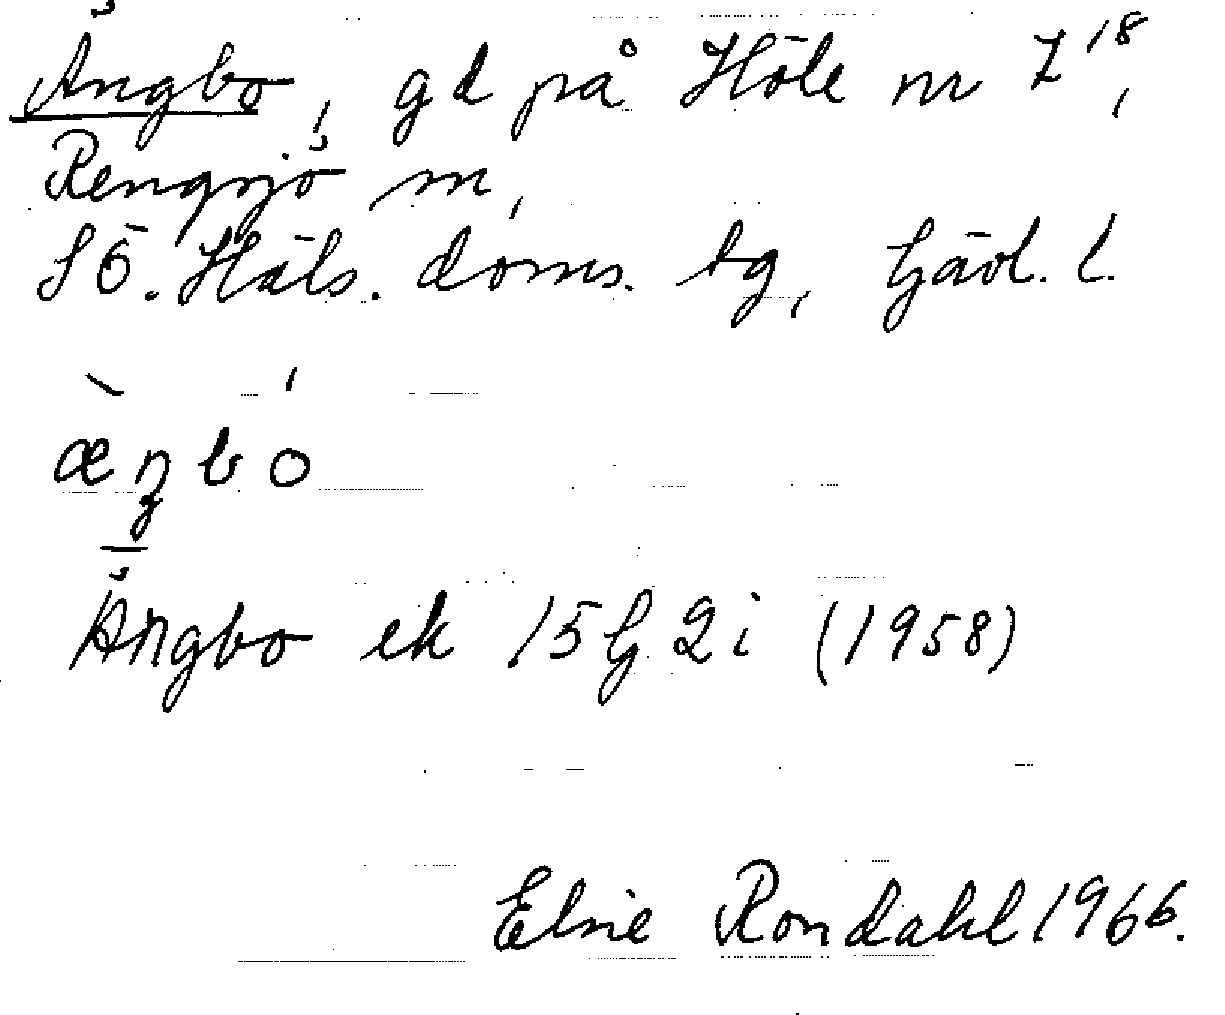 Ängbo, gd på Höle nr 7¹⁸,
Rengsjö sn,
SÖ. Häls. doms. tg, Gävl. l.
æ̀ŋbó
Ängbo ek 15G 2i (1958)
Elsie Rondahl 1966.